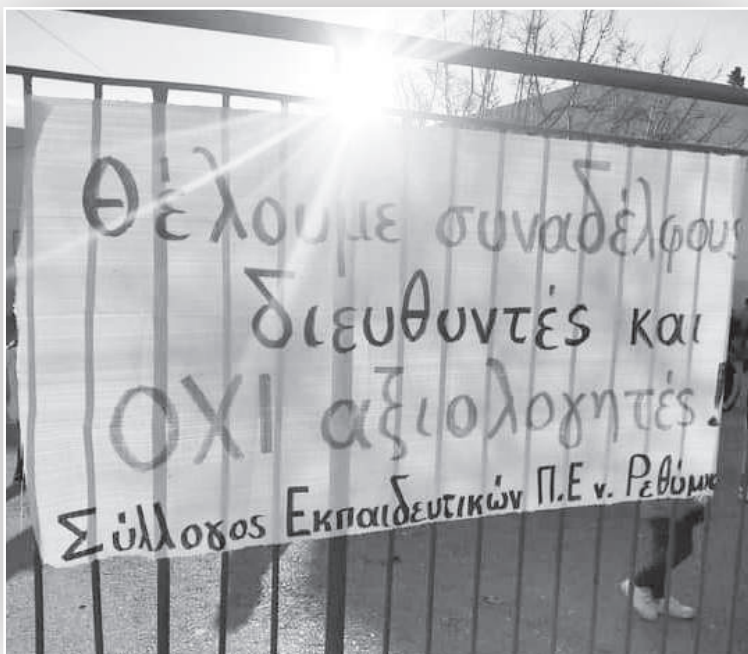 Θέλουμε συναδέλφους
διευθυντές και
ΟΧΙ αξιολογητές!
Σύλλογος Εκπαιδευτικών Π.Ε ν. Ρεθύμνου